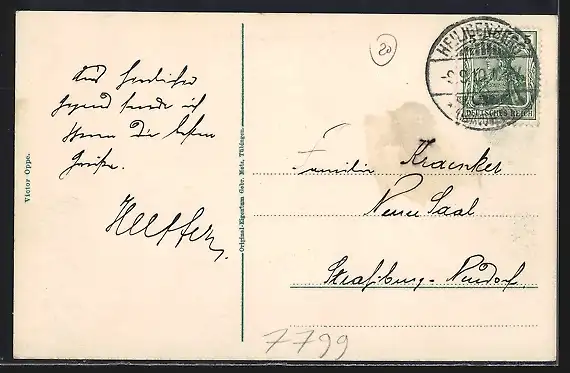 20
HEILIGENBERG
DEUTSCHES REICH
Aus herrlicher
Gegend sende ich
Ihnen die besten
Grüße.
Familie Kraenker
Neuer Saal
Straßburg-Neudorf
Victor Oppe.
Original-Eigentum Gebr. Metz, Tübingen.
7799